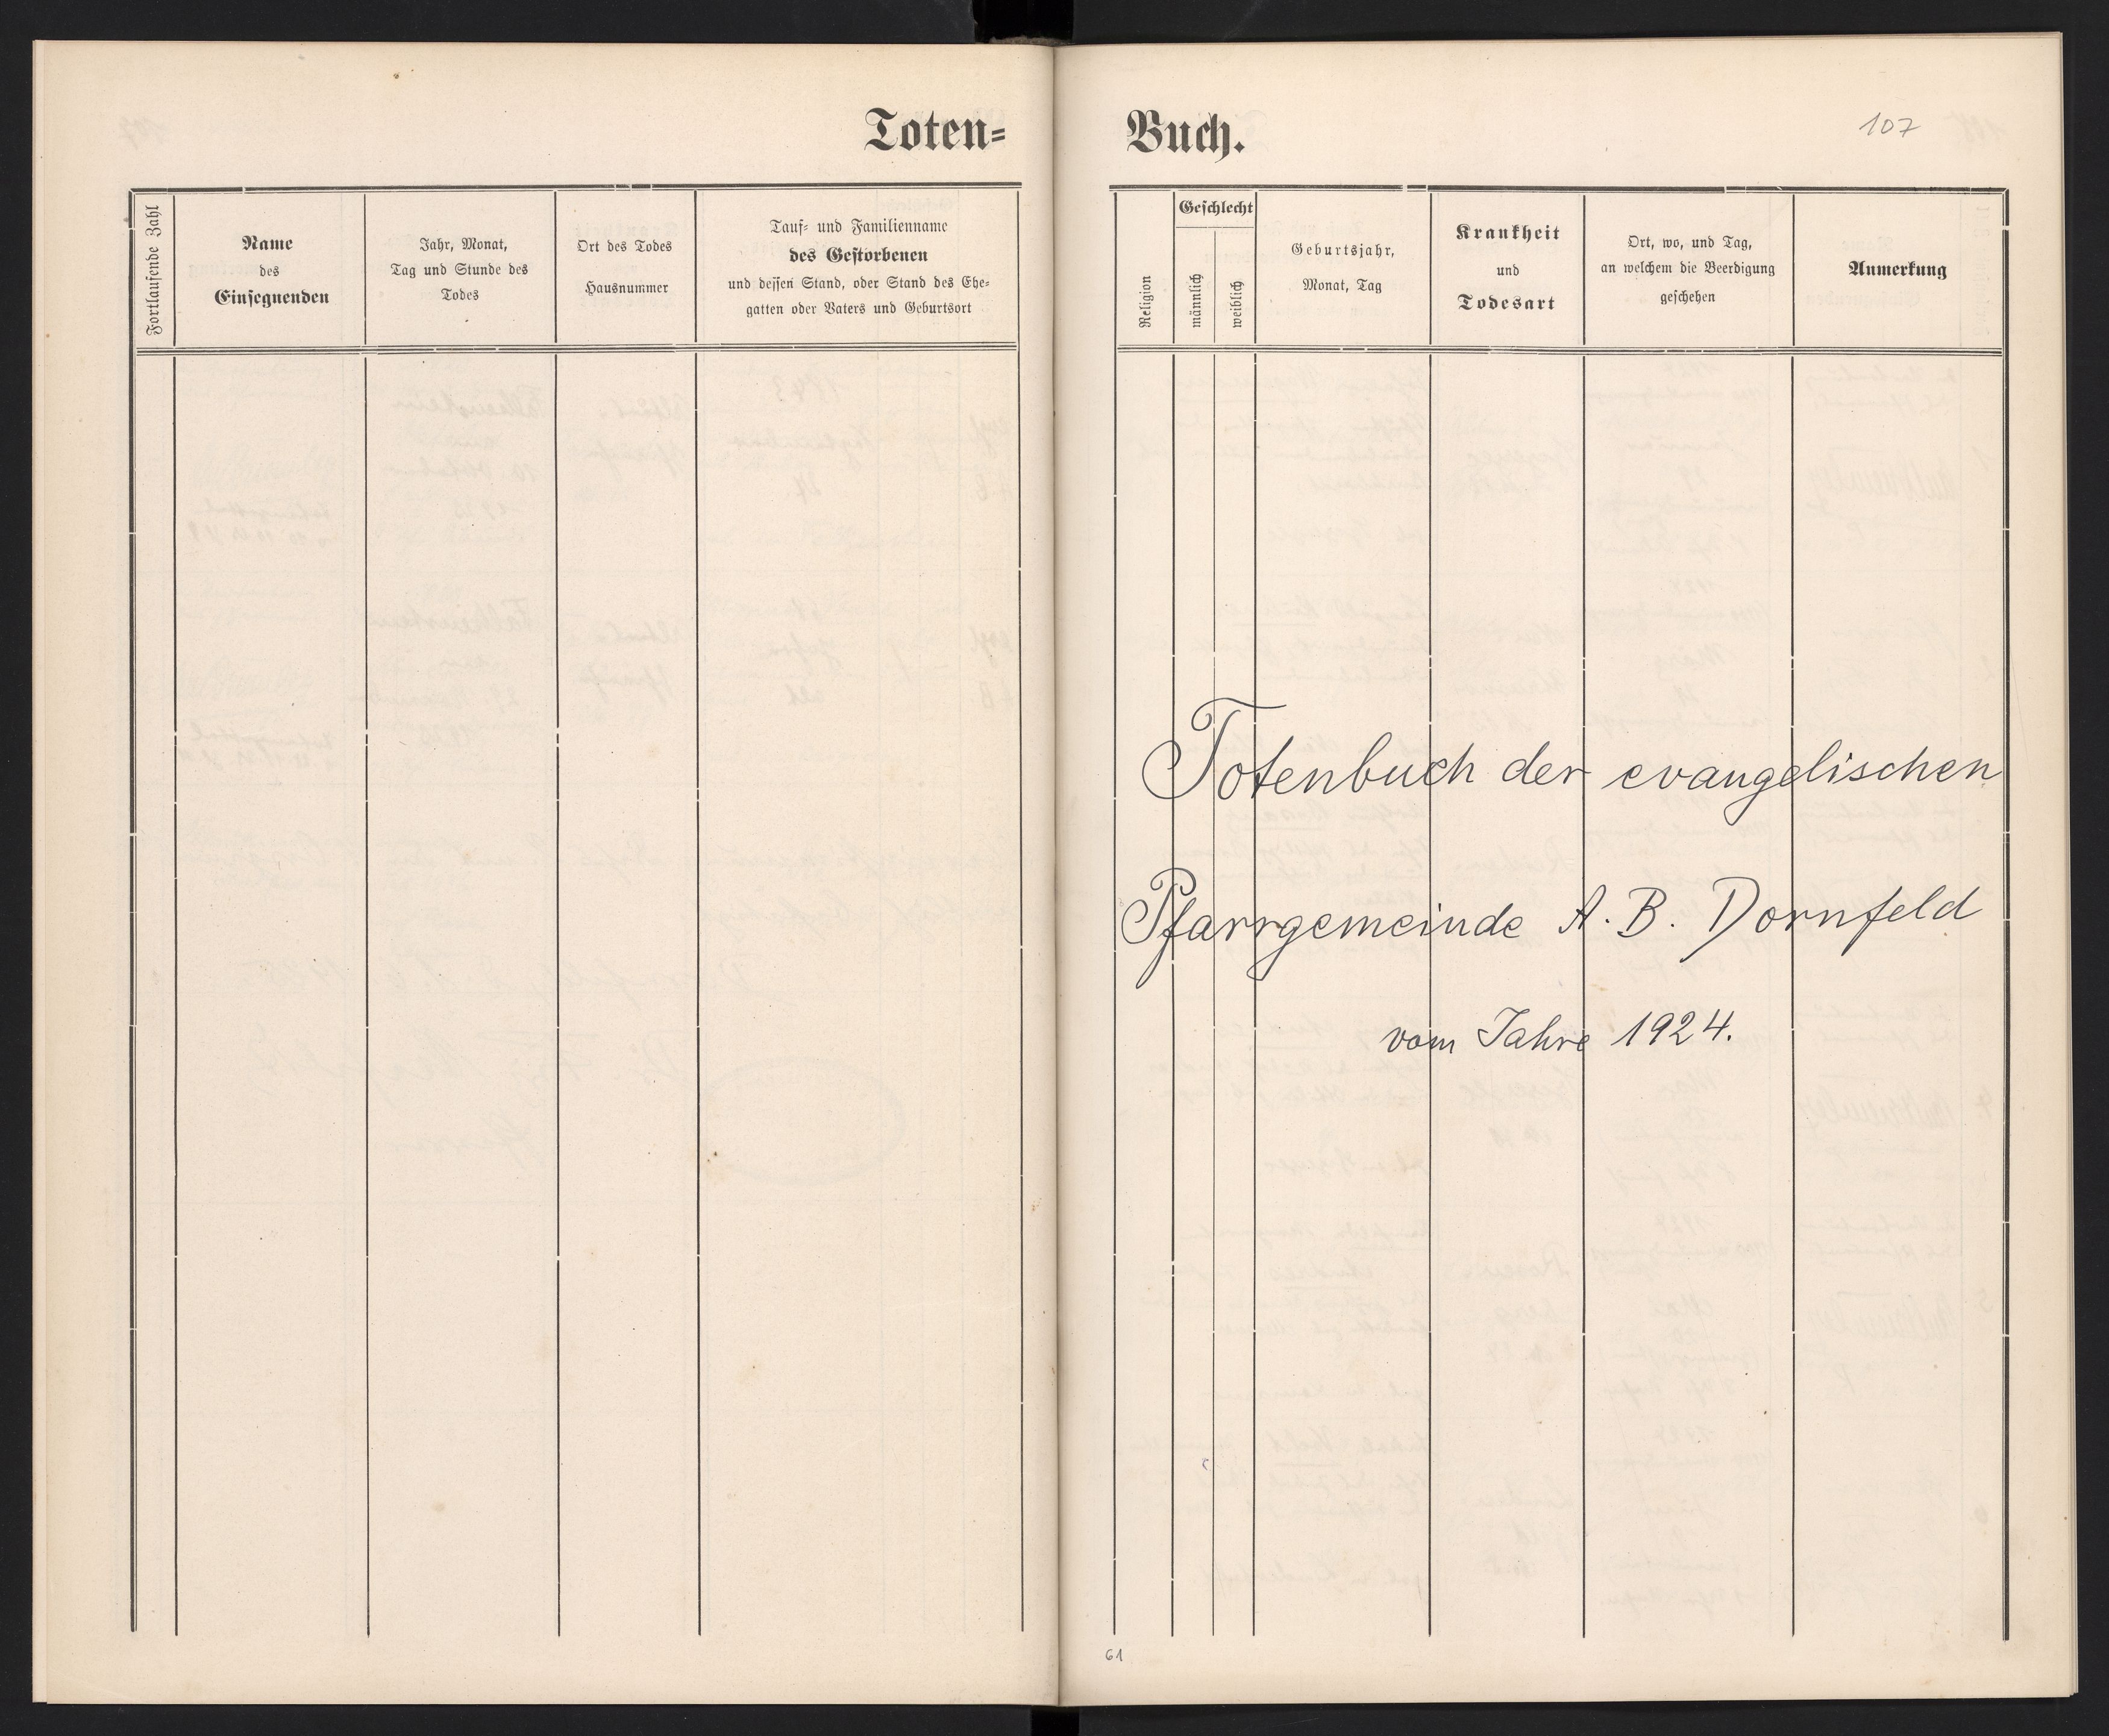 Toten=
Fortlaufende Zahl
Name
des
Einsegnenden
Jahr, Monat,
Tag und Stunde des
Todes
Ort des Todes
Hausnummer
Tauf= und Familienname
des Gestorbenen
und dessen Stand, oder Stand des Ehe=
gatten oder Vaters und Geburtsort
Buch.
107
Religion
Geschlecht
männlich
weiblich
Geburtsjahr,
Monat, Tag
Krankheit
und
Todesart
Ort, wo, und Tag,
an welchem die Beerdigung
geschehen
Anmerkung
Totenbuch der evangelischen
Pfarrgemeinde A. B. Dornfeld
vom Jahre 1924.
61